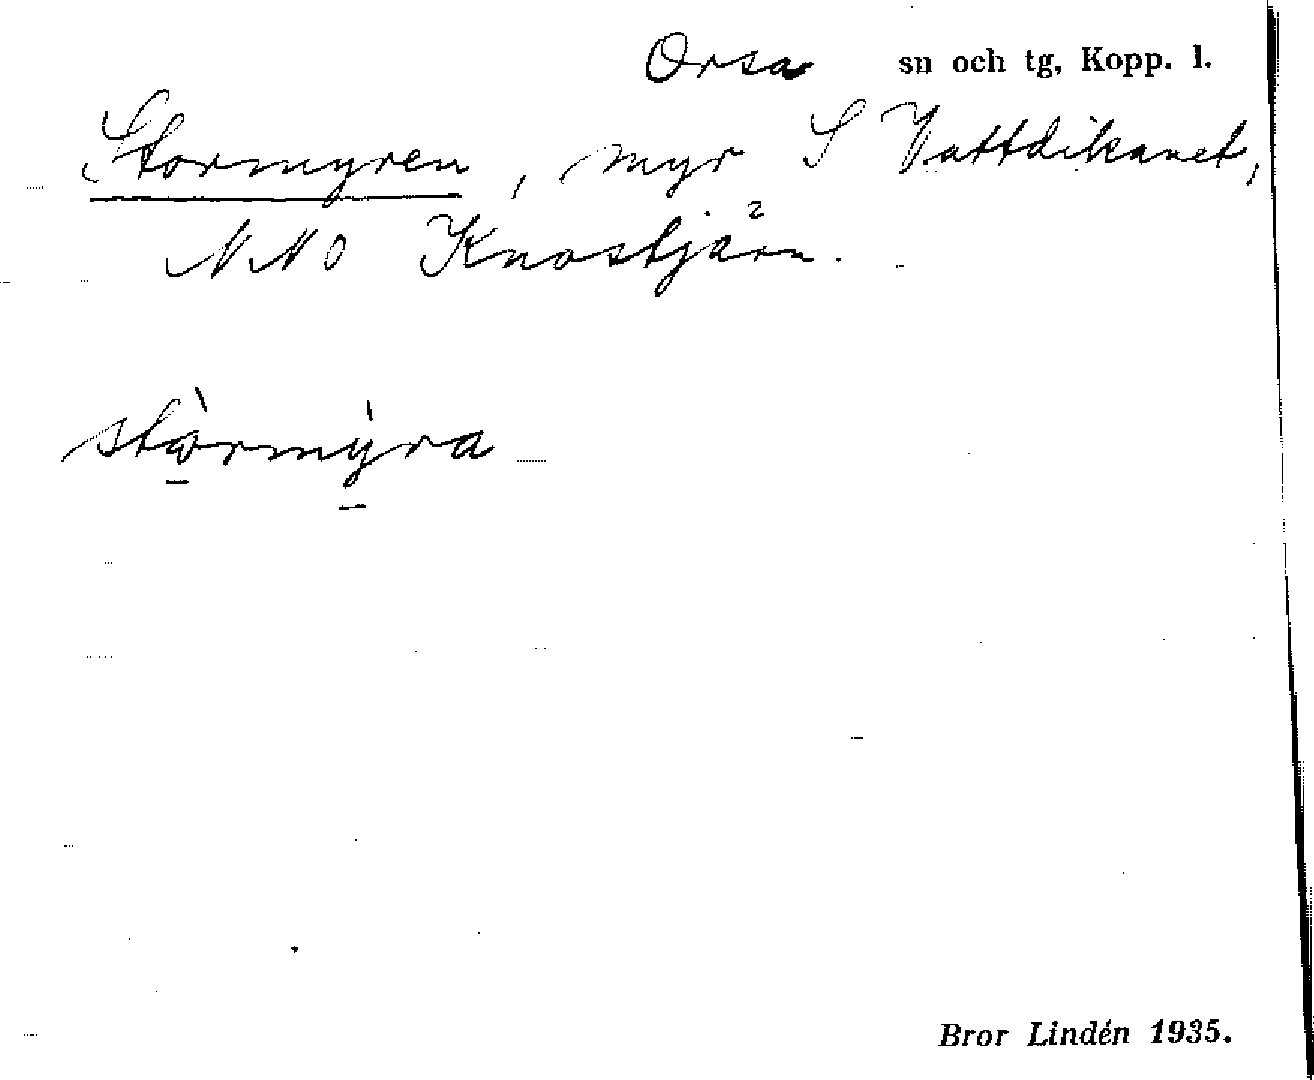 Orsa sn och tg, Kopp. l.
Stormyren, myr S Vattdikanet,
NNO Knostjärn.
stòrmỳra
Bror Lindén 1935.